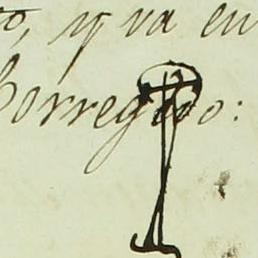 to, y va en
Corregido: